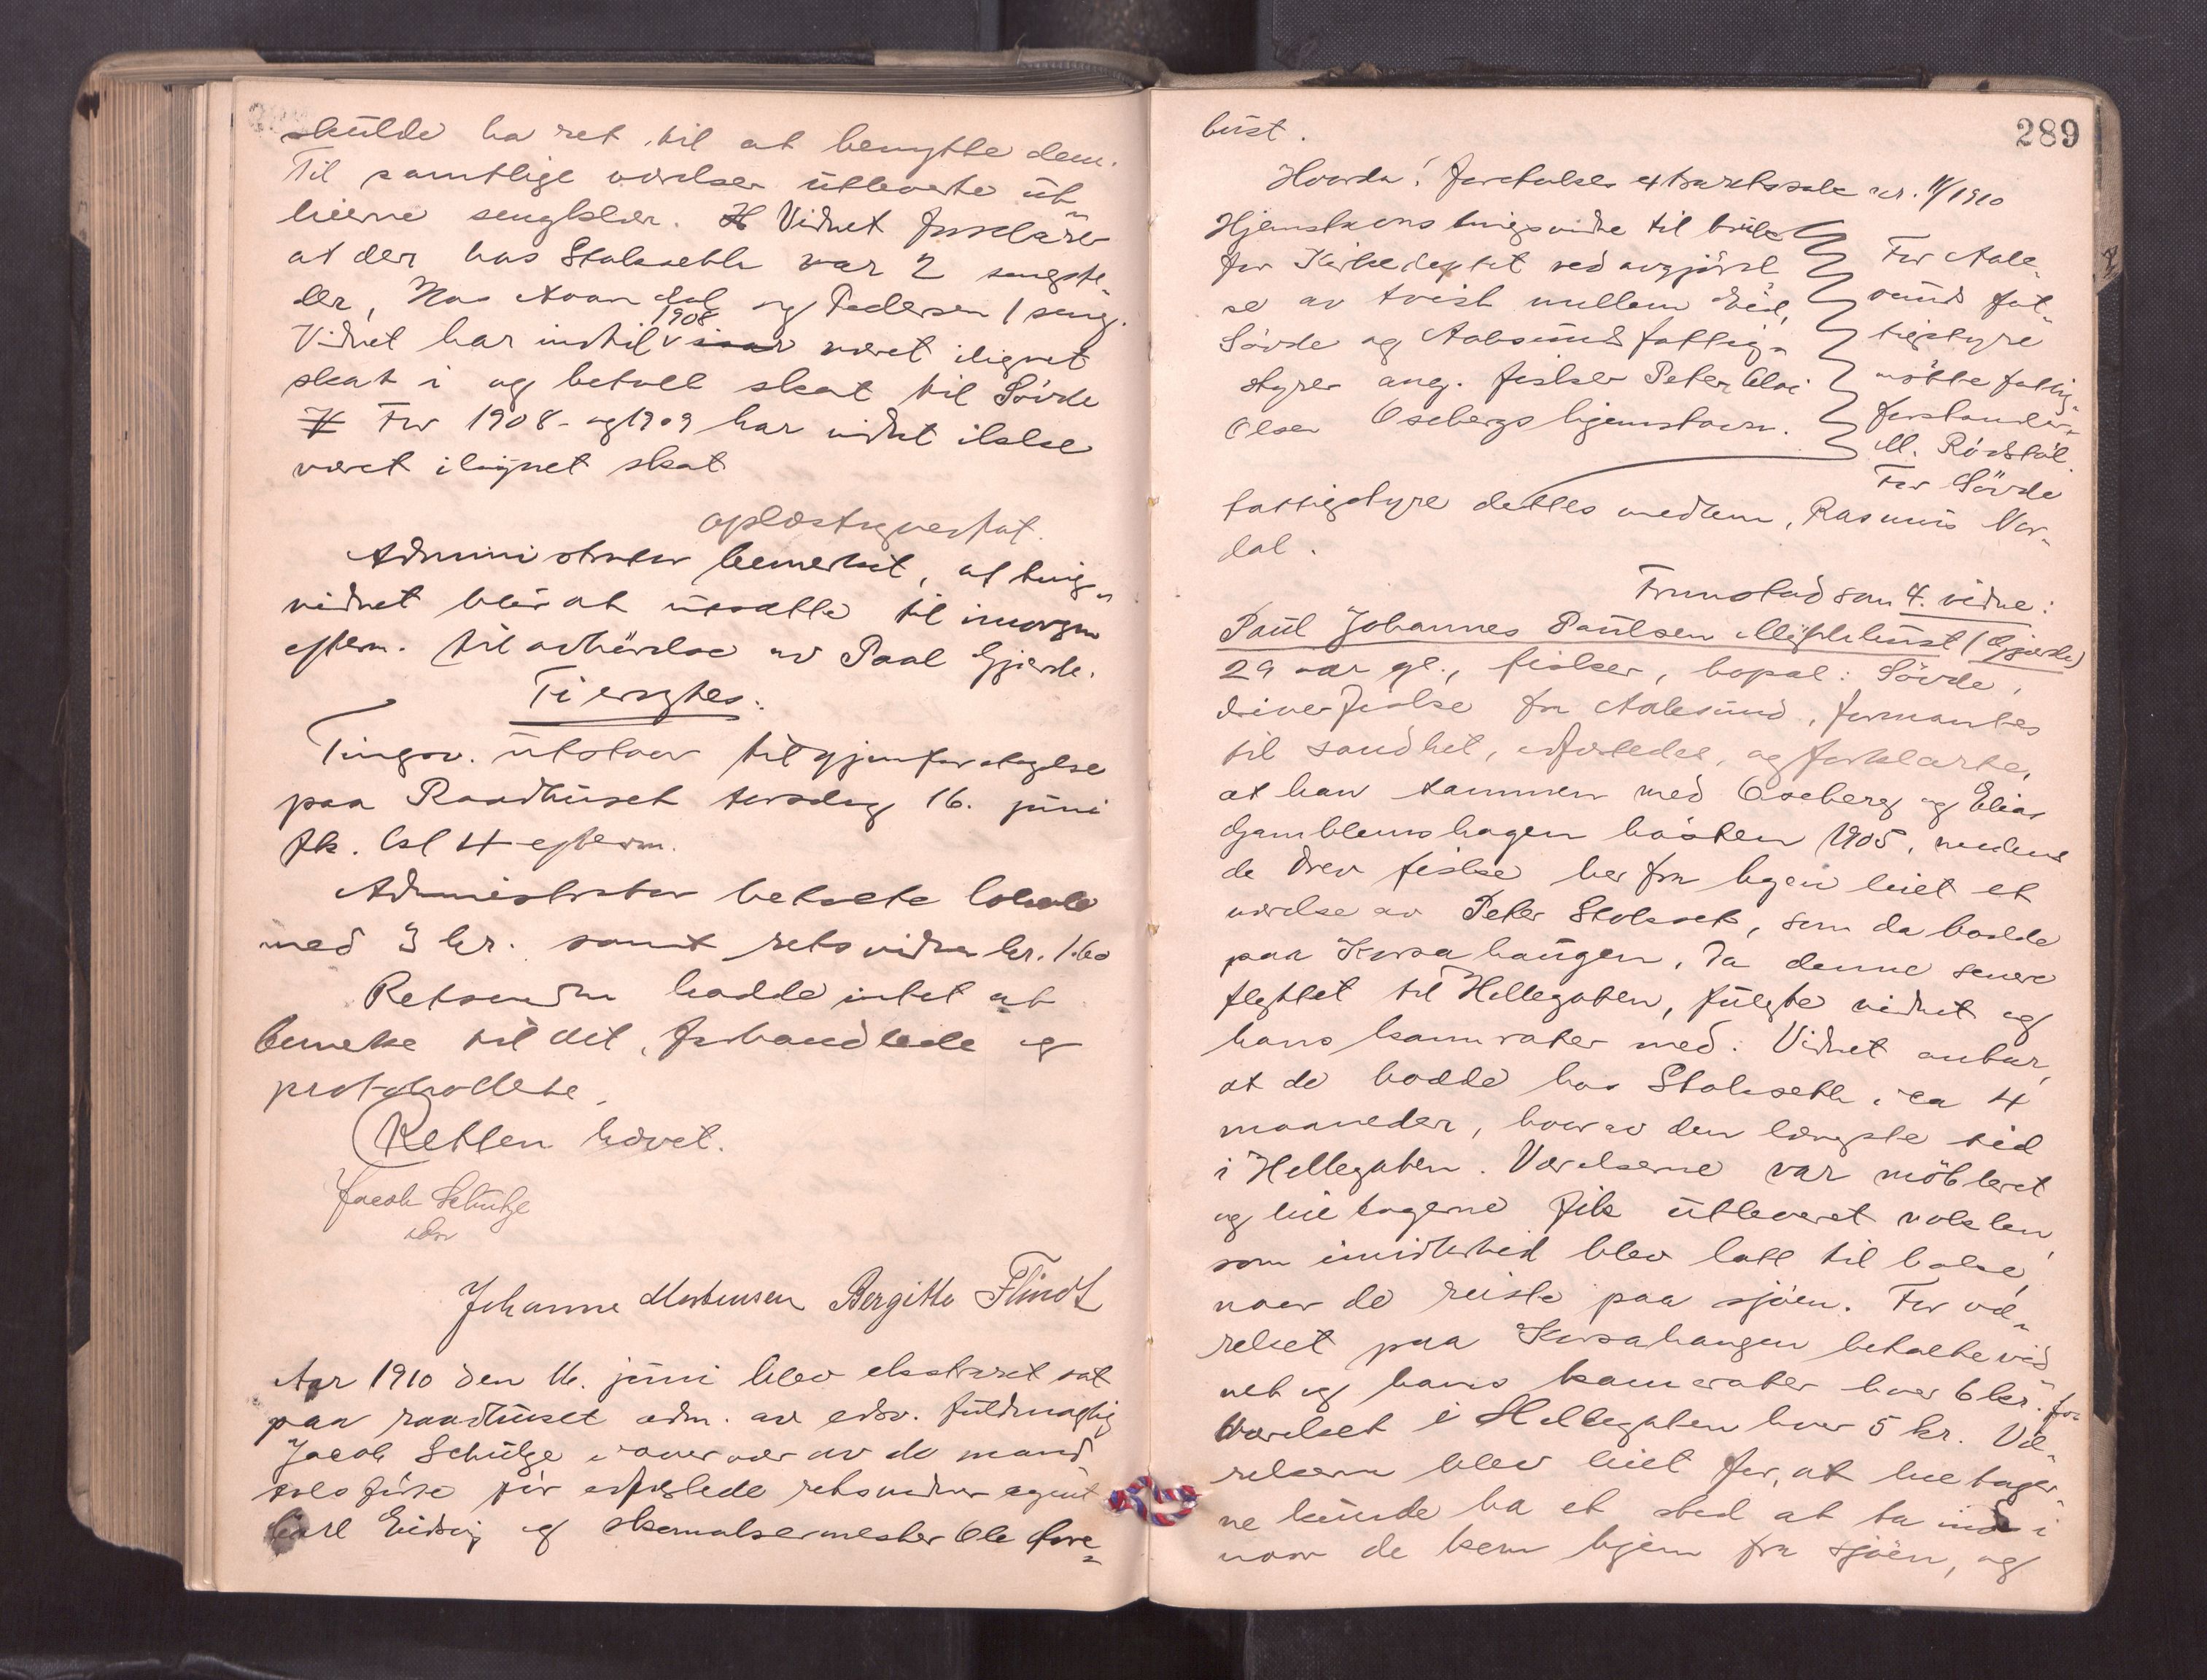 skulde ha ret til at benytte dem.
Til samtlige værelser utleverte ut-
leierne sengklær. Vidnet forklarer
at der hos Stokseth var 2 sengste-
der, Hos Avan dal og Pedersen 1 seng.
Vidnet har indtil 1908 været ilignet
skat i og betalt skat til Søvde
For 1908- og 1909 har vidnet ikke
været ilignet skat
oplæst og vedtat.
Administrator bemerket, at ting-
vidnet blir at utsætte til imorgen
efterm. til avhørelse av Paal Gjerde.
Ti ergtes:
Tingsv. utstaar til gjenforetagelse
paa Raadhuset torsdag 16. juni
fk. kl 4 efterm.
Administrator betalte lokale
med 3 kr. samt retsvidner kr. 1.60
Retsvidn hadde intet at
bemerke til det forhandlede og
protokollerte.
Retten hævet.
Jacob Schulze
edsv
Johanne Mortensen Bergitte Flindt
Aar 1910 den 16. juni blev ekstraret sat
paa raadhuset adm. av edsv. fuldmægtig
Jacob Schulze i overvær av de mand
tals førte før edfæstede retsvidner agent
Carl Eidsvig og skomakermester Ole Fure-
289
bust.
Hvorda: foretoges extraretssak nr. 11/1910
Hjemstavns tingsvidne til bruk
for Kirkedeptet ved avgjørel
se av tvist mellem Eid,
Søvde og Aalesunds fattig-
styrer ang. fisker Peter Elai
Olsen Osebergs hjemstavn.
For Aale-
sunds fat-
tigstyre
møtte fattig-
forstander
M. Rødstøl.
For Søvde
fattigstyre dettes medlem, Rasmus Nor-
dal.
Fremstod som 4. vidne:
Paul Johannes Paulsen Myklebust (Gjerde)
29 aar gl., fisker, bopæl: Søvde,
driver fiske fra Aalesund, formantes
til sandhet, edfæstedes, og forklarte,
at han sammen med Oseberg og Elias
Gamblemshagen høsten 1905, medens
de drev fiske her fra byen leiet et
værelse av Peter Stokset, som da bodde
paa Korsahaugen. Da denne senere
flyttet til Hellegaten, fulgte vidnet og
hans kamerater med. Vidnet antar,
at de bodde hos Stokseth i ca 4
maaneder, hvorav den længste tid
i Hellegaten. Værelserne var møbleret
og leietagerne fik utleveret nøklen,
som imidlertid blev latt tilbake,
naar de reiste paa sjøen. For væ-
relset paa Korsahaugen betalte vid
net og hans kamerater hver 6 kr. for
værelset i Hellegaten hver 5 kr. Væ-
relserne blev leiet for, at leietager-
ne kunde ha et sted at ta ind i
naar de kom hjem fra sjøen, og